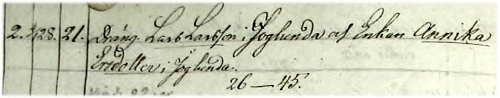 2. 28. 21. Dräng. Lars Larsson i Joglunda af Enkan Annika
Ersdotter i Joglunda.
26 — 45.